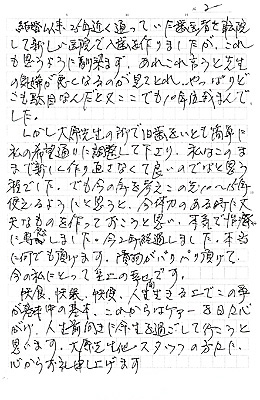 2
結婚以来、25年近く通っていた歯医者を転院
して新しい医院で入歯を作りましたが、これ
も思うように馴染ます、あれこれ言うと先生
の機嫌が悪くなるのが見てとれ…やっぱりど
こも駄目なんだと又ここでも10年位我まんで
した。
しかし大原先生の所で旧歯をいとも簡単に
私の希望通りに調整して下さり、私はこのま
まで新しく作り直さなくて良いのでなと思う
程でした。でも今の年を考えこの先10〜15年
使えるようにと思うと、今体力のある時に丈
夫なものを作っておこうと思い、本気で治療
に専念しました。今2年経過しました。本当
に何でも頂けます。漬物がバリバリ頂けて、
今の私にとって至上の幸せです。
快食、快眠、快便、人生生きる上でこの事
が基本中の基本、これからはケアーを日々心
がけ、人生前向きに余生を過ごして行こうと
思います。大原先生他スタッフの方々に、
心からお礼申し上げます